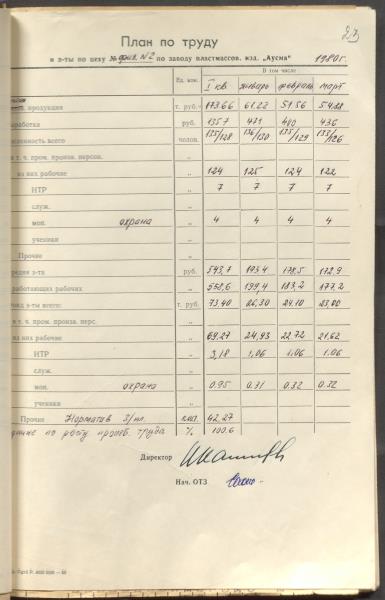 23
План по труду
и з-ты по цеху № фил. N2 по заводу пластмассов. изд. „Аусма" 1980г.
Ед. изм. В том числе
I кв январь февраль март
продукция т. руб. 173.66 61.22 51.56
работка руб. 1357 471 480 436
ленность всего челов. 135/128 136/130 135/129 133/126
в т. ч. пром. произв. персон. „
из них рабочие „ 124 125 124 122
ИТР „ 7 7 7 7
служ. „
моп. охрана „ 4 4 4 4
ученики „
Прочие „
редняя з-та руб. 543,7 193.4 178,5 172,9
работающих рабочих „ 558,6 199,4 183,2 177,2
онд з-ты всего: т. руб. 73,40 26,30 24.10 23,00
в т. ч. пром. произв. перс. „
из них рабочие „ 69.27 24,93 22.72 21,62
ИТР „ 3,18 1,06 1.06 1.06
служ. „
моп. охрана „ 0.95 0.31 0.32 0.32
ученики „
Прочие Норматив з/пл. коп. 42.27
по росту произв. труда % 100.6
Директор
Нач. ОТЗ